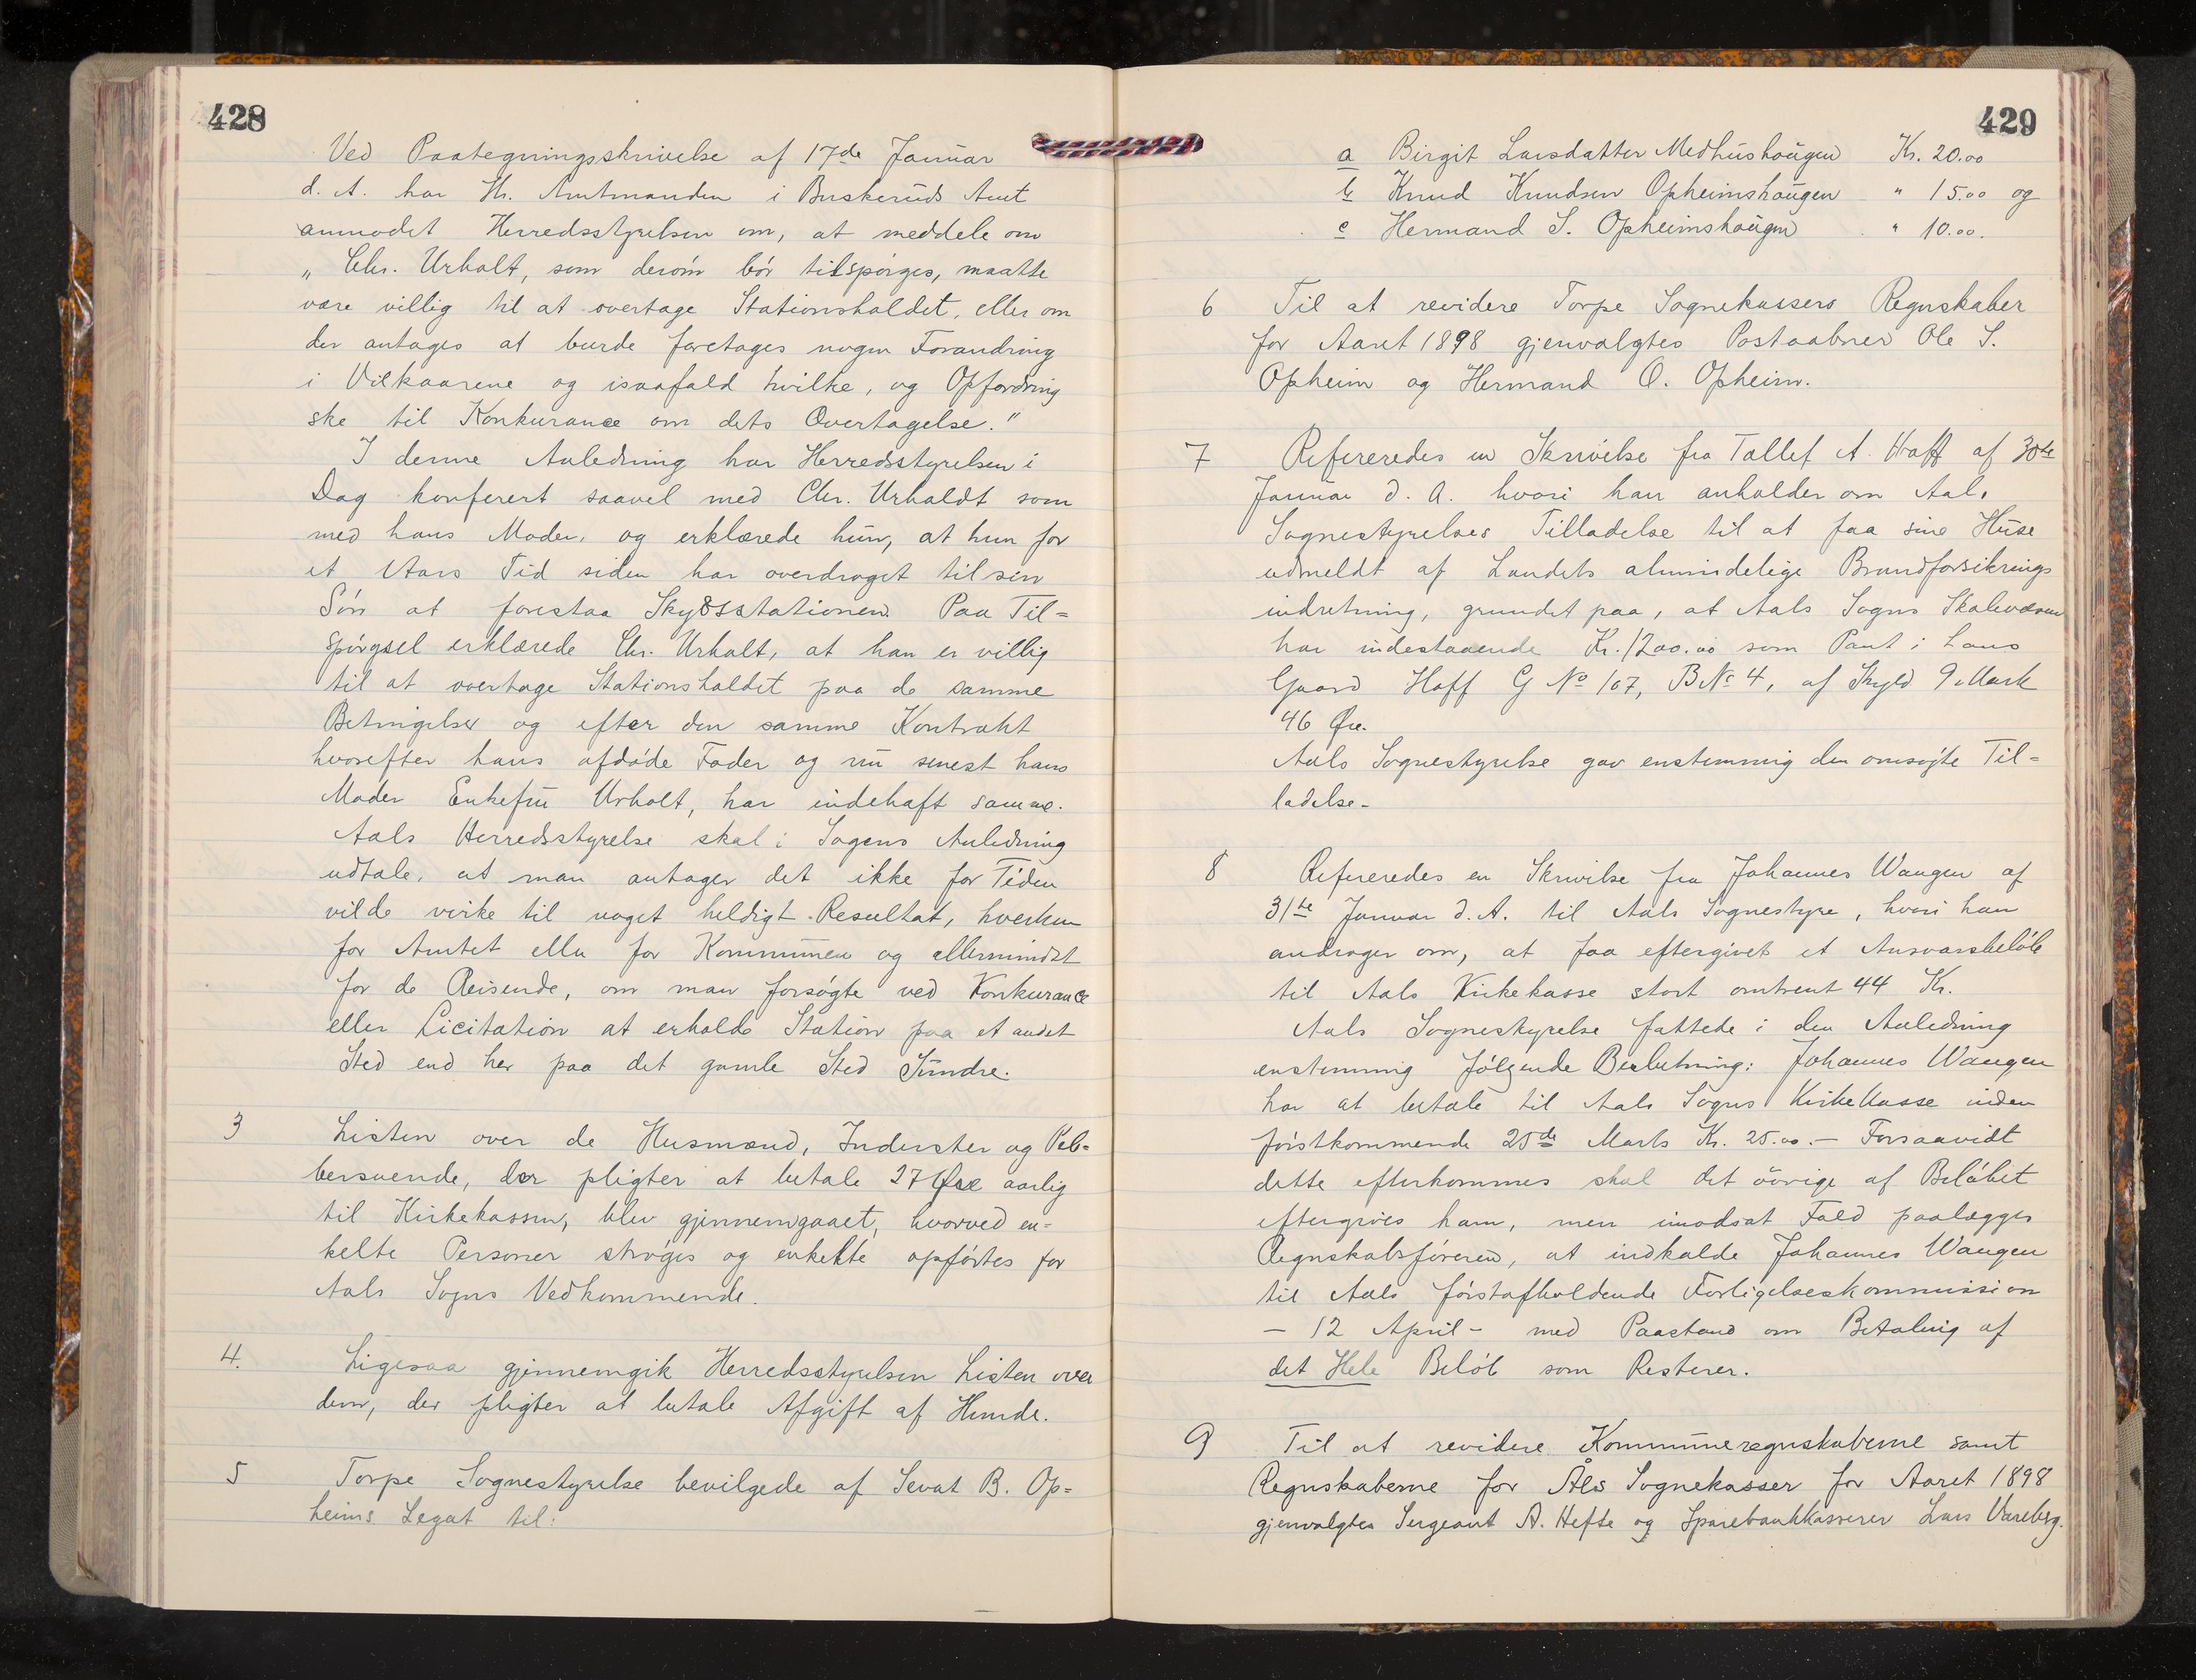 428
Ved Paategningsskrivelse af 17de Januar
d. A. har Hr. Amtmanden i Buskeruds Amt
anmodet Herredsstyrelsen om, at meddele om
„Chr. Urholt, som derom bör tilspörges, maatte
være villig til at overtage Stationsholdet, eller om
der antages at burde foretages nogen Forandring
i Vilkaarene og isaafald hvilke, og Opfordring
ske til Konkurance om dets Overtagelse."
I denne Anledning har Herredsstyrelsen i
Dag konferert saavel med Chr. Urholdt som
med hans Moder, og erklærede hun, at hun for
et Aars Tid siden har overdraget til sin
Sön at forestaa Skydsstationen. Paa Til=
spörgsel erklærede Chr. Urholt, at han er villig
til at overtage Stationsholdet paa de samme
Betingelser og efter den samme Kontrakt
hvorefter hans afdöde Fader og nu senest hans
Moder Enkefru Urholt, har indehaft samme.
Aals Herredsstyrelse skal i Sagens Anledning
udtale, at man antager det ikke for Tiden
vilde virke til noget heldigt Resultat, hverken
for Amtet eller for Kommunen og allermindst
for de Reisende, om man forsøgte ved Konkurance
eller Licitation at erholde Station paa et andet
Sted end her paa det gamle Sted Sundre.
3 Listen over de Husmænd, Inderster og Peb=
bersvende, der pligter at betale 27 Øre aarlig
til Kirkekassen, blev gjennemgaaet, hvorved en=
kelte Personer ströges og enkelte opförtes for
Aals Sogns Vedkommende.
4. Ligesaa gjennemgik Herredsstyrelsen Listen over
dem, der pligter at betale Afgift af Hunde.
5 Torpe Sognestyrelse bevilgede af Sevat B. Op=
heims Legat til:
429
a Birgit Larsdatter Medhushaugen Kr. 20.00
b Knud Knudsen Opheimshaugen " 15.00 og
c Hermand S. Opheimshaugen " 10.00.
6 Til at revidere Torpe Sognekassers Regnskaber
for Aaret 1898 gjenvalgtes Postaabner Ole S.
Opheim og Hermand O. Opheim.
7 Refereredes en Skrivelse fra Tollef A. Hoff af 30te
Januar d. A. hvori han anholder om Aals
Sognestyrelses Tilladelse til at faa sine Huse
udmeldt af Landets almindelige Brandforsikrings
indretning, grundet paa, at Aals Sogns Skolevæsen
har indestaaende Kr. 1200.00 som Pant i hans
Gaard Hoff G No 107, B No 4, af Skyld 9 Mark
46 Øre.
Aals Sognestyrelse gav enstemmig den omsøgte Til=
ladelse.
8 Refereredes en Skrivelse fra Johannes Wangen af
31te Januar d. A. til Aals Sognestyre, hvori han
andrager om, at faa eftergivet et Ansvarsbelöb
til Aals Kirkekasse stort omtrent 44 Kr.
Aals Sognestyrelse fattede i den Anledning
enstemmig fölgende Beslutning: Johannes Wangen
har at betale til Aals Sogns Kirkekasse inden
förstkommende 25de Marts Kr. 25.00.— Forsaavidt
dette efterkommes skal det övrige af Belöbet
eftergives ham, men imodsat Fald paalægges
Regnskabsföreren, at indkalde Johannes Wangen
til Aals förstafholdende Forligelseskommission
— 12 April — med Paastand om Betaling af
det Hele Belöb som Resterer.
9 Til at revidere Kommuneregnskaberne samt
Regnskaberne for Åls Sognekasser for Aaret 1898
gjenvalgtes Sergeant A. Hefte og Sparebankkasserer Lars Vareberg.